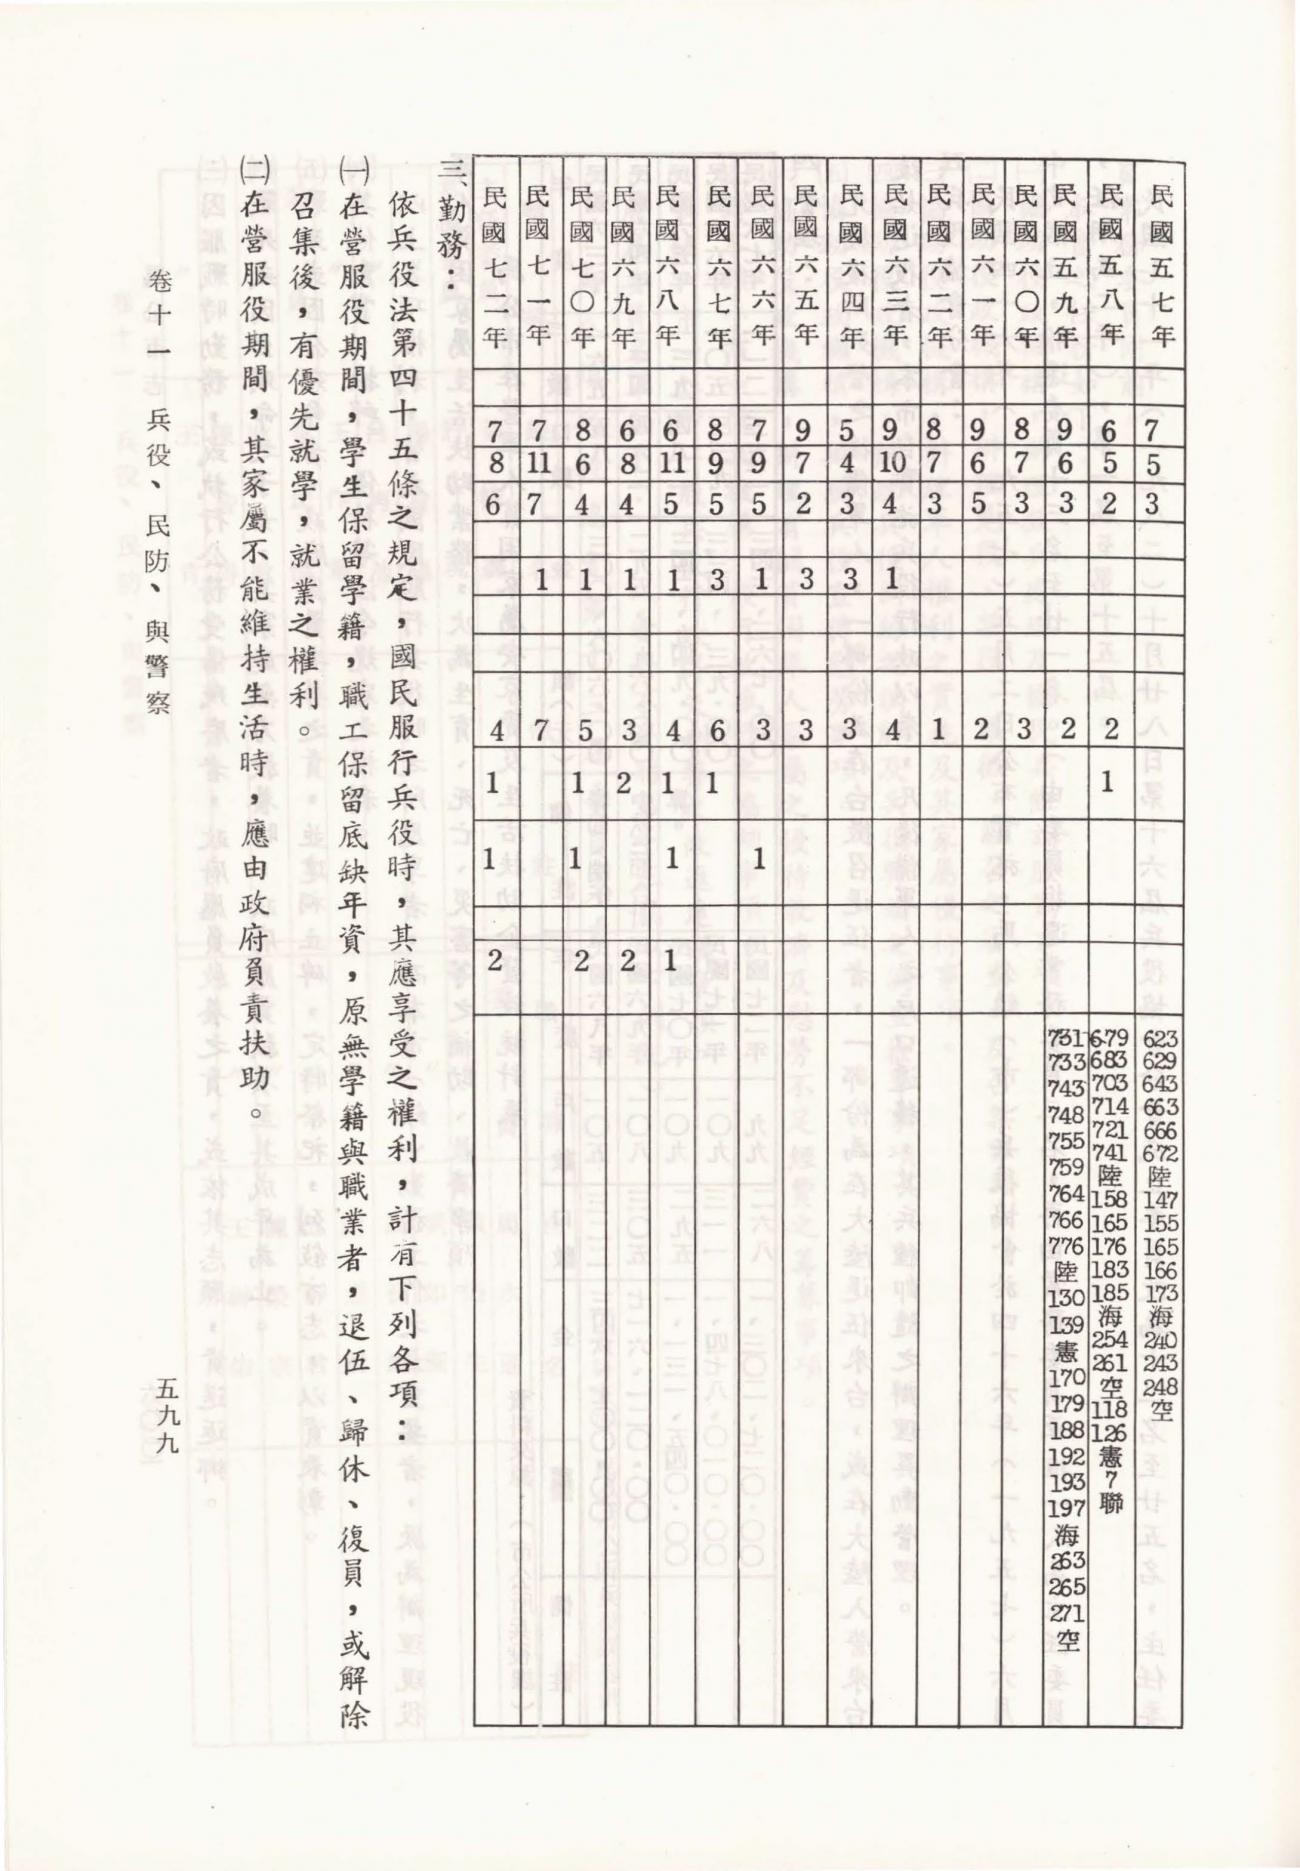 民國五七年 7 5 3 623 629 643 663 666 672 陸 147 155 165 166 173 海 240 243 248 空
民國五八年 6 5 2 2 1 679 683 703 714 721 741 陸 158 165 176 183 185 海 254 261 空 118 126 憲 7 聯
民國五九年 9 6 3 2 731 733 743 748 755 759 764 766 776 陸 130 139 憲 170 179 188 192 193 197 海 263 265 271 空
民國六〇年 8 7 3 3
民國六一年 9 6 5 2
民國六二年 8 7 3 1
民國六三年 9 10 4 1 4
民國六四年 5 4 3 3 3
民國六五年 9 7 2 3 3
民國六六年 7 9 5 1 3 1
民國六七年 8 9 5 3 6 1
民國六八年 6 11 5 1 4 1 1 1
民國六九年 6 8 4 1 3 2 2
民國七〇年 8 6 4 1 5 1 1 2
民國七一年 7 11 7 1 7
民國七二年 7 8 6 4 1 1 2
三、勤務：
依兵役法第四十五條之規定，國民服行兵役時，其應享受之權利，計有下列各項：
㈠在營服役期間，學生保留學籍，職工保留底缺年資，原無學籍與職業者，退伍、歸休、復員，或解除
召集後，有優先就學，就業之權利。
㈡在營服役期間，其家屬不能維持生活時，應由政府負責扶助。
卷十一 兵役、民防、與警察
五九九